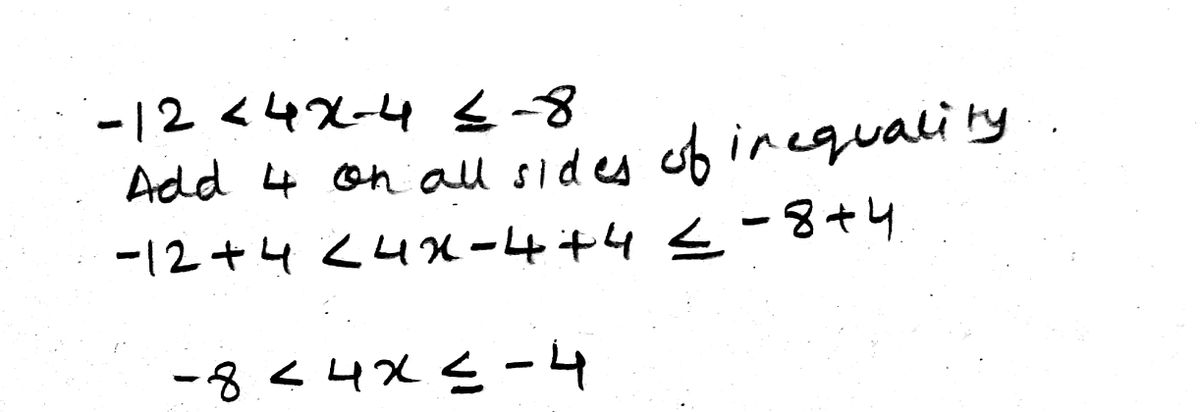 -12 < 4x-4 ≤ -8
Add 4 on all sides of inequality.
-12+4 < 4x-4+4 ≤ -8+4
-8 < 4x ≤ -4